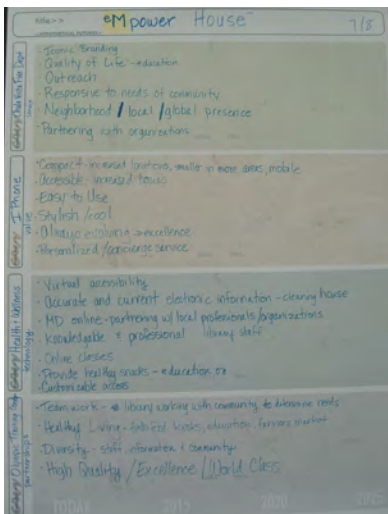 title>> eMpower House 7/8
Library Chula Vista Fire Dept
· Iconic Branding
· Quality of Life - education
· Outreach
· Responsive to needs of community
· Neighborhood / local / global presence
· Partnering with organizations
Library I Phone
value
· Compact - increased locations, smaller in more areas, mobile
· Accessible, increased hours
· Easy to Use
· Stylish / cool
· Always evolving → excellence
· Personalized / concierge service
Library Health + Wellness
technology
· Virtual accessibility
· Accurate and current electronic information - clearing house
· MD online - partnering w/ local professionals/organizations
· Knowledgable & professional library staff
· Online classes
· Provide healthy snacks - education on
· Customizable access
Library Olympic Training
partnerships
· Teamwork - library working with community to determine needs
· Healthy Living - kiosks, education, farmers market
· Diversity - staff, information & community
· High Quality / Excellence / World Class
TODAY 2015 2020